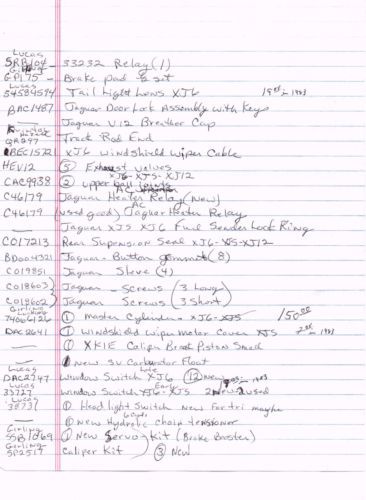 Lucas
SRB104 - 33232 Relay (1)
Girling
GP175 - Brake pad set
Lucas
54584594 Tail Light Lens XJ6
BAC1487 Jaguar Door Lock Assembly with Keys
— Jaguar V12 Breather Cap
QR297 - Track Rod End
BEC15721 XJ6 Windshield Wiper Cable
HEV12 (5) Exhaust valves
XJ6-XJS-XJ12
CAC9938 (2) upper ball joints
C46179 Jaguar Heater Relay (new)
AC
C46179 (used good) Jaguar Heater Relay
— Jaguar XJS XJ6 Fuel Sender Lock Ring
CO17213 Rear Suspension Seal XJ6-XJS-XJ12
BD004321 Jaguar - Button grommets (8)
CO19851 Jaguar Sleve (4)
CO18603 Jaguar - Screws (3 Long)
CO18602 Jaguar Screws (3 Short)
Girling
74006126 (1) Master Cylinder - XJ6-XJS 150.00
DAC2641 (1) Windshield Wiper motor Cover XJS
— (1) XKIE Caliper Brake Piston Small
— 1 New. SU Carborator Float
Lucas
DAC2747 Window Switch XJ6 (12) New
Lucas
33727 Window Switch XJ6-XJS 2 New 2 used
Lucas
(1) Head light Switch New For tri maybe
(1) New Hydrolic chain tensioner
Girling
SSB1069 (1) New Servo Kit (Brake Booster)
Girling
SP2517 Caliper Kit (3) New